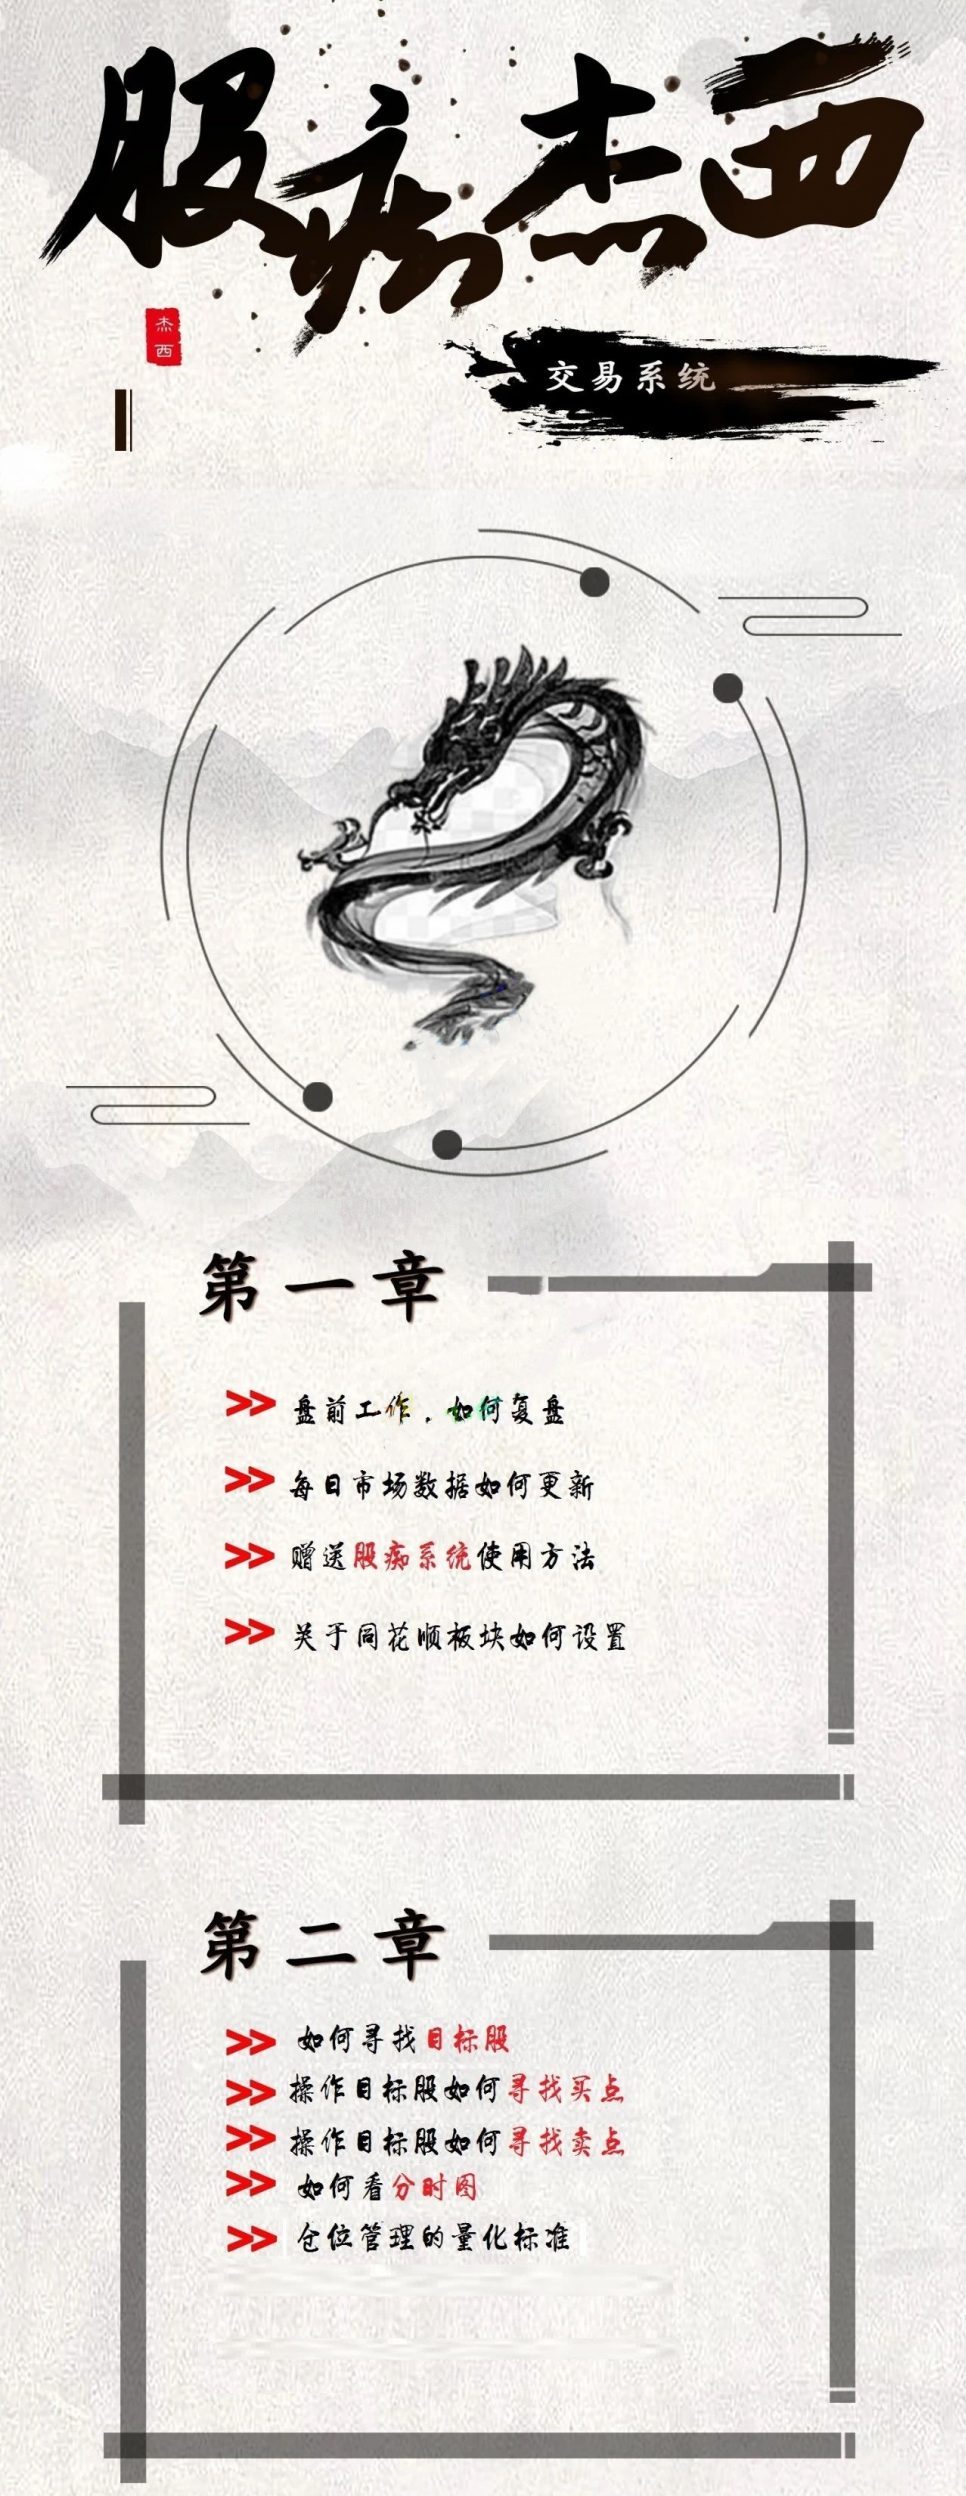 股痴杰西
杰西
交易系统
第一章
>> 盘前工作，如何复盘
>> 每日市场数据如何更新
>> 赠送股痴系统使用方法
>> 关于同花顺板块如何设置
第二章
>> 如何寻找目标股
>> 操作目标股如何寻找买点
>> 操作目标股如何寻找卖点
>> 如何看分时图
>> 仓位管理的量化标准